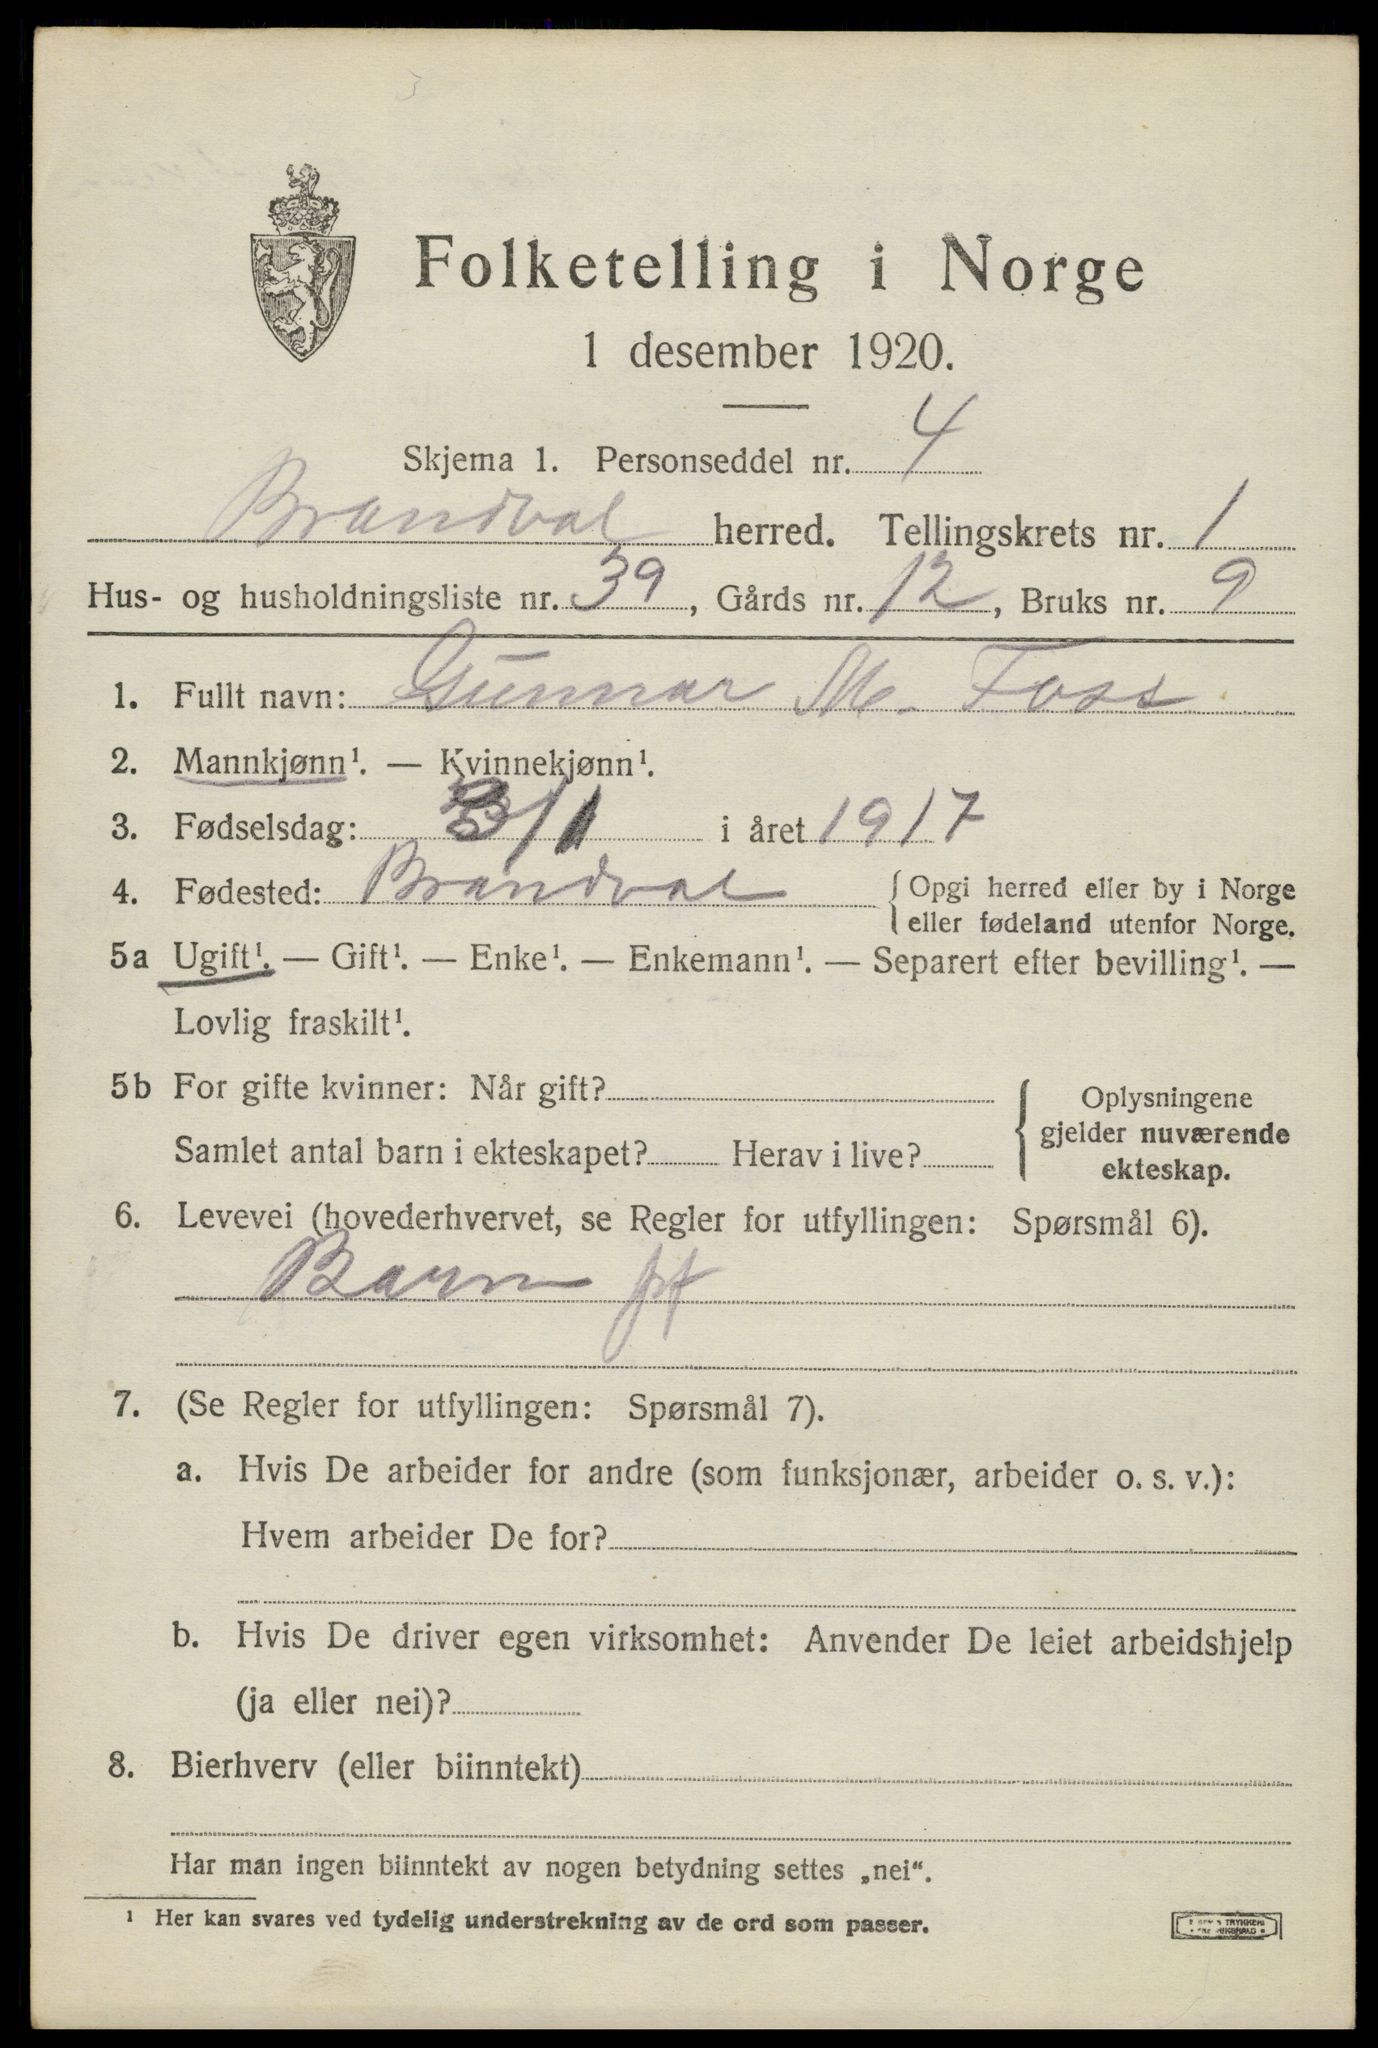 Folketelling i Norge
1 desember 1920.
Skjema 1. Personseddel nr. 4
Brandval herred. Tellingskrets nr. 1
Hus- og husholdningsliste nr. 39, Gårds nr. 12, Bruks nr. 9
1. Fullt navn: Gunnar M. Foss
2. Mannkjønn¹. — Kvinnekjønn¹.
3. Fødselsdag: 3/1 i året 1917
4. Fødested: Brandval {Opgi herred eller by i Norge
eller fødeland utenfor Norge.
5a Ugift¹. — Gift¹. — Enke¹. — Enkemann¹. — Separert efter bevilling¹. —
Lovlig fraskilt¹.
5b For gifte kvinner: Når gift?
Samlet antal barn i ekteskapet? Herav i live?
Oplysningene
gjelder nuværende
ekteskap.
6. Levevei (hovederhvervet, se Regler for utfyllingen: Spørsmål 6).
Barn
7. (Se Regler for utfyllingen: Spørsmål 7).
a. Hvis De arbeider for andre (som funksjonær, arbeider o. s. v.):
Hvem arbeider De for?
b. Hvis De driver egen virksomhet: Anvender De leiet arbeidshjelp
(ja eller nei)?
8. Bierhverv (eller biinntekt)
Har man ingen biinntekt av nogen betydning settes „nei“.
¹ Her kan svares ved tydelig understrekning av de ord som passer.